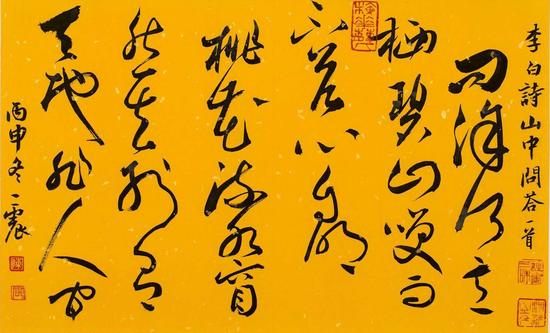 李白詩山中問荅一首
问余何意
栖碧山笑而
不答心自闲
桃花流水窅
然去别有
天地非人间
丙申冬一震